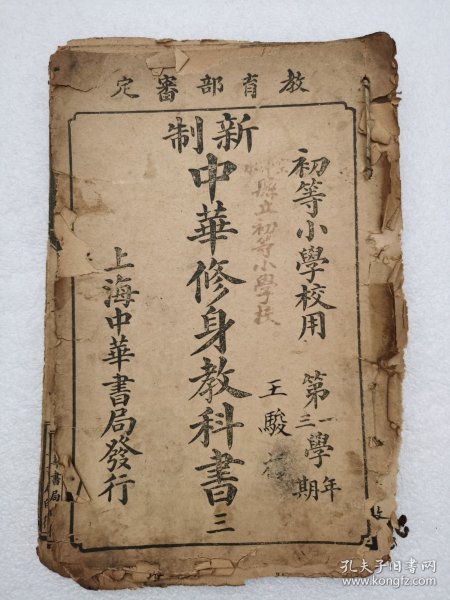 教育部審定
初等小學校用
第一學年
第三學期
王駿
縣立初等小學校
新制
中華修身教科書三
上海中華書局發行
書局
孔夫子旧书网
www.kongfz.com